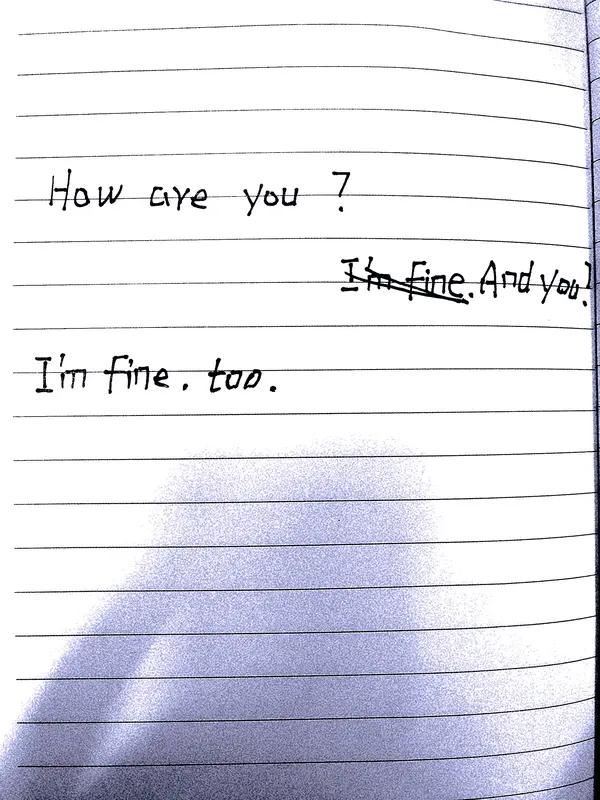 How are you ?
I'm fine. And you?
I'm fine. too.